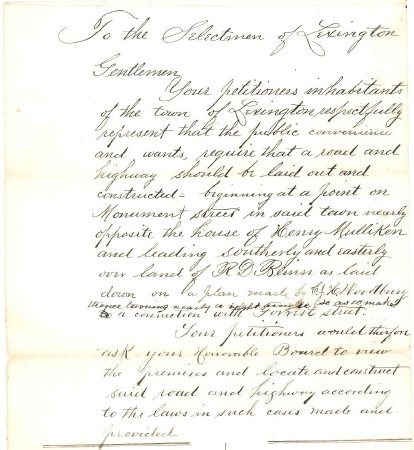 To the Selectmen of Lexington
Gentlemen
Your petitioners inhabitants
of the town of Lexington respectfully
represent that the public convenience
and wants, require that a road and
highway should be laid out and
constructed - beginning at a point on
Monument street in said town nearly
opposite the house of Henry Mulliken
and leading southerly and easterly
over land of R. D. Blinn as laid
down on a plan made by Woodbury
thence turning nearly a right so as to make
to a connection with Forrest street.
Your petitioners would therefore
ask your Honorable Board to view
the premises and locate and construct
said road and highway according
to the laws in such cases made and
provided